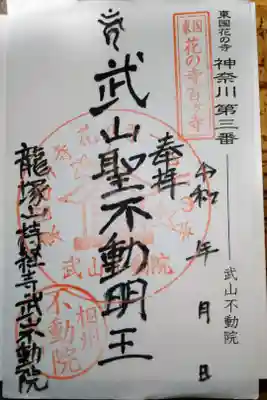 東国花の寺 神奈川 第三番 ―― 武山不動院
東国
花の寺百ヶ寺
令和 年 月 日
奉拝
武山聖不動明王
武山不動院
相州
不動院
龍塚山持経寺武山不動院